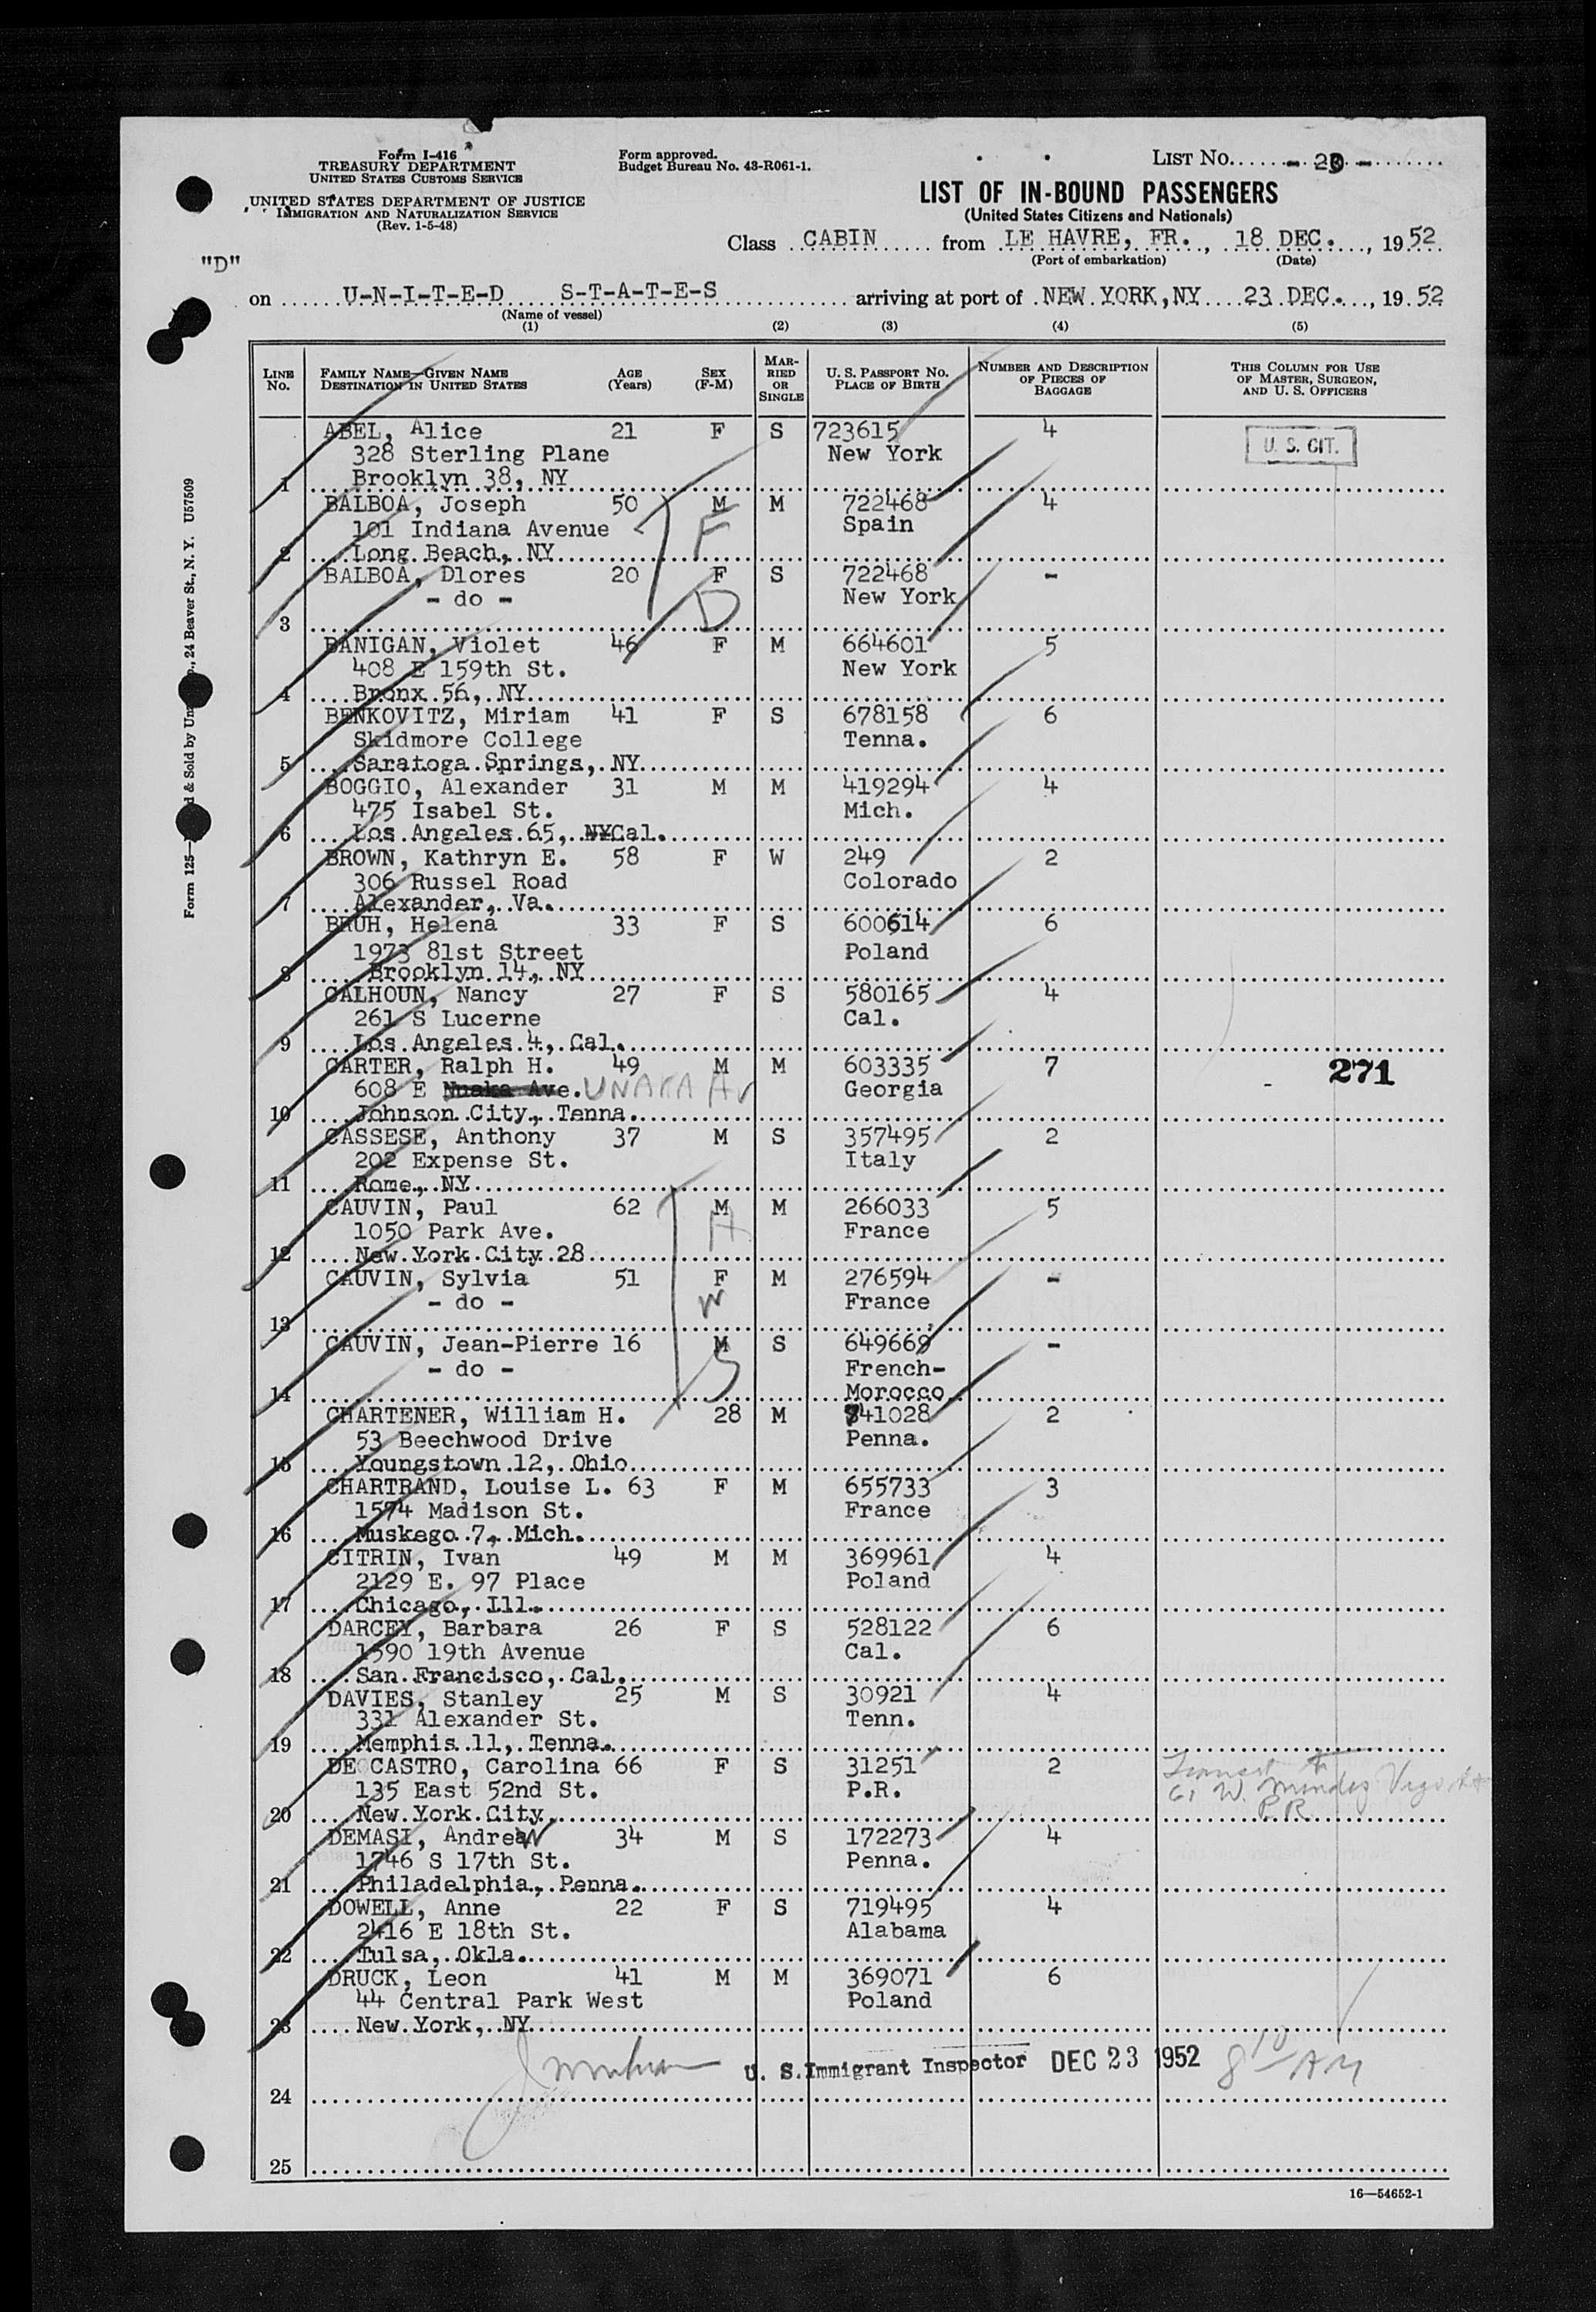 Form I-416
TREASURY DEPARTMENT
UNITED STATES CUSTOMS SERVICE
UNITED STATES DEPARTMENT OF JUSTICE
IMMIGRATION AND NATURALIZATION SERVICE
(Rev. 1-5-48)
Form approved.
Budget Bureau No. 43-R061-1.
LIST NO.
LIST OF IN-BOUND PASSENGERS
(United States Citizens and Nationals)
Class CABIN from LE HAVRE, FR., 18 DEC., 1952
(Port of embarkation) (Date)
"D"
on U-N-I-T-E-D S-T-A-T-E-S arriving at port of NEW YORK, NY 23 DEC., 1952
(Name of vessel)
(1) (2) (3) (4) (5)
LINE No. FAMILY NAME—GIVEN NAME DESTINATION IN UNITED STATES AGE (Years) SEX (F-M) MARRIED OR SINGLE U. S. PASSPORT NO. PLACE OF BIRTH NUMBER AND DESCRIPTION OF PIECES OF BAGGAGE THIS COLUMN FOR USE OF MASTER, SURGEON, AND U. S. OFFICERS
ABEL, Alice 21 F S 723615 4 U. S. CIT.
328 Sterling Plane New York
1 Brooklyn 38, NY
BALBOA, Joseph 50 M M 722468 4
101 Indiana Avenue F Spain
2 Long Beach, NY
BALBOA, Dlores 20 F S 722468 -
- do - D New York
3
BANIGAN, Violet 46 F M 664601 5
408 E 159th St. New York
4 Bronx 56, NY
BENKOVITZ, Miriam 41 F S 678158 6
Skidmore College Tenna.
5 Saratoga Springs, NY
BOGGIO, Alexander 31 M M 419294 4
475 Isabel St. Mich.
6 Los Angeles 65, NYCal.
BROWN, Kathryn E. 58 F W 249 2
306 Russel Road Colorado
7 Alexander, Va.
BRUH, Helena 33 F S 600614 6
1973 81st Street Poland
8 Brooklyn 14, NY
CALHOUN, Nancy 27 F S 580165 4
261 S Lucerne Cal.
9 Los Angeles 4, Cal.
CARTER, Ralph H. 49 M M 603335 7 271
608 E Nuaka Ave. UNAKA Av Georgia
10 Johnson City, Tenna.
CASSESE, Anthony 37 M S 357495 2
202 Expense St. Italy
11 Rome, NY
CAUVIN, Paul 62 M M 266033 5
1050 Park Ave. H France
12 New York City 28
CAUVIN, Sylvia 51 F M 276594 -
- do - W France
13
CAUVIN, Jean-Pierre 16 M S 649669 -
- do - S French-
14 Morocco
CHARTENER, William H. 28 M 741028 2
53 Beechwood Drive Penna.
15 Youngstown 12, Ohio
CHARTRAND, Louise L. 63 F M 655733 3
1574 Madison St. France
16 Muskego 7, Mich.
CITRIN, Ivan 49 M M 369961 4
2129 E. 97 Place Poland
17 Chicago, Ill.
DARCEY, Barbara 26 F S 528122 6
1590 19th Avenue Cal.
18 San Francisco, Cal.
DAVIES, Stanley 25 M S 30921 4
331 Alexander St. Tenn.
19 Memphis 11, Tenna.
DE CASTRO, Carolina 66 F S 31251 2 Transit to
135 East 52nd St. P.R. W. Mendez Vigo
20 New York City P.R.
DEMASI, Andrew 34 M S 172273 4
1746 S 17th St. Penna.
21 Philadelphia, Penna.
DOWELL, Anne 22 F S 719495 4
2416 E 18th St. Alabama
22 Tulsa, Okla.
DRUCK, Leon 41 M M 369071 6
44 Central Park West Poland
23 New York, NY
U. S. Immigrant Inspector DEC 23 1952 8 10 AM
24
25
16—54652-1
Form 125— & Sold by Un , 24 Beaver St., N. Y. U57509